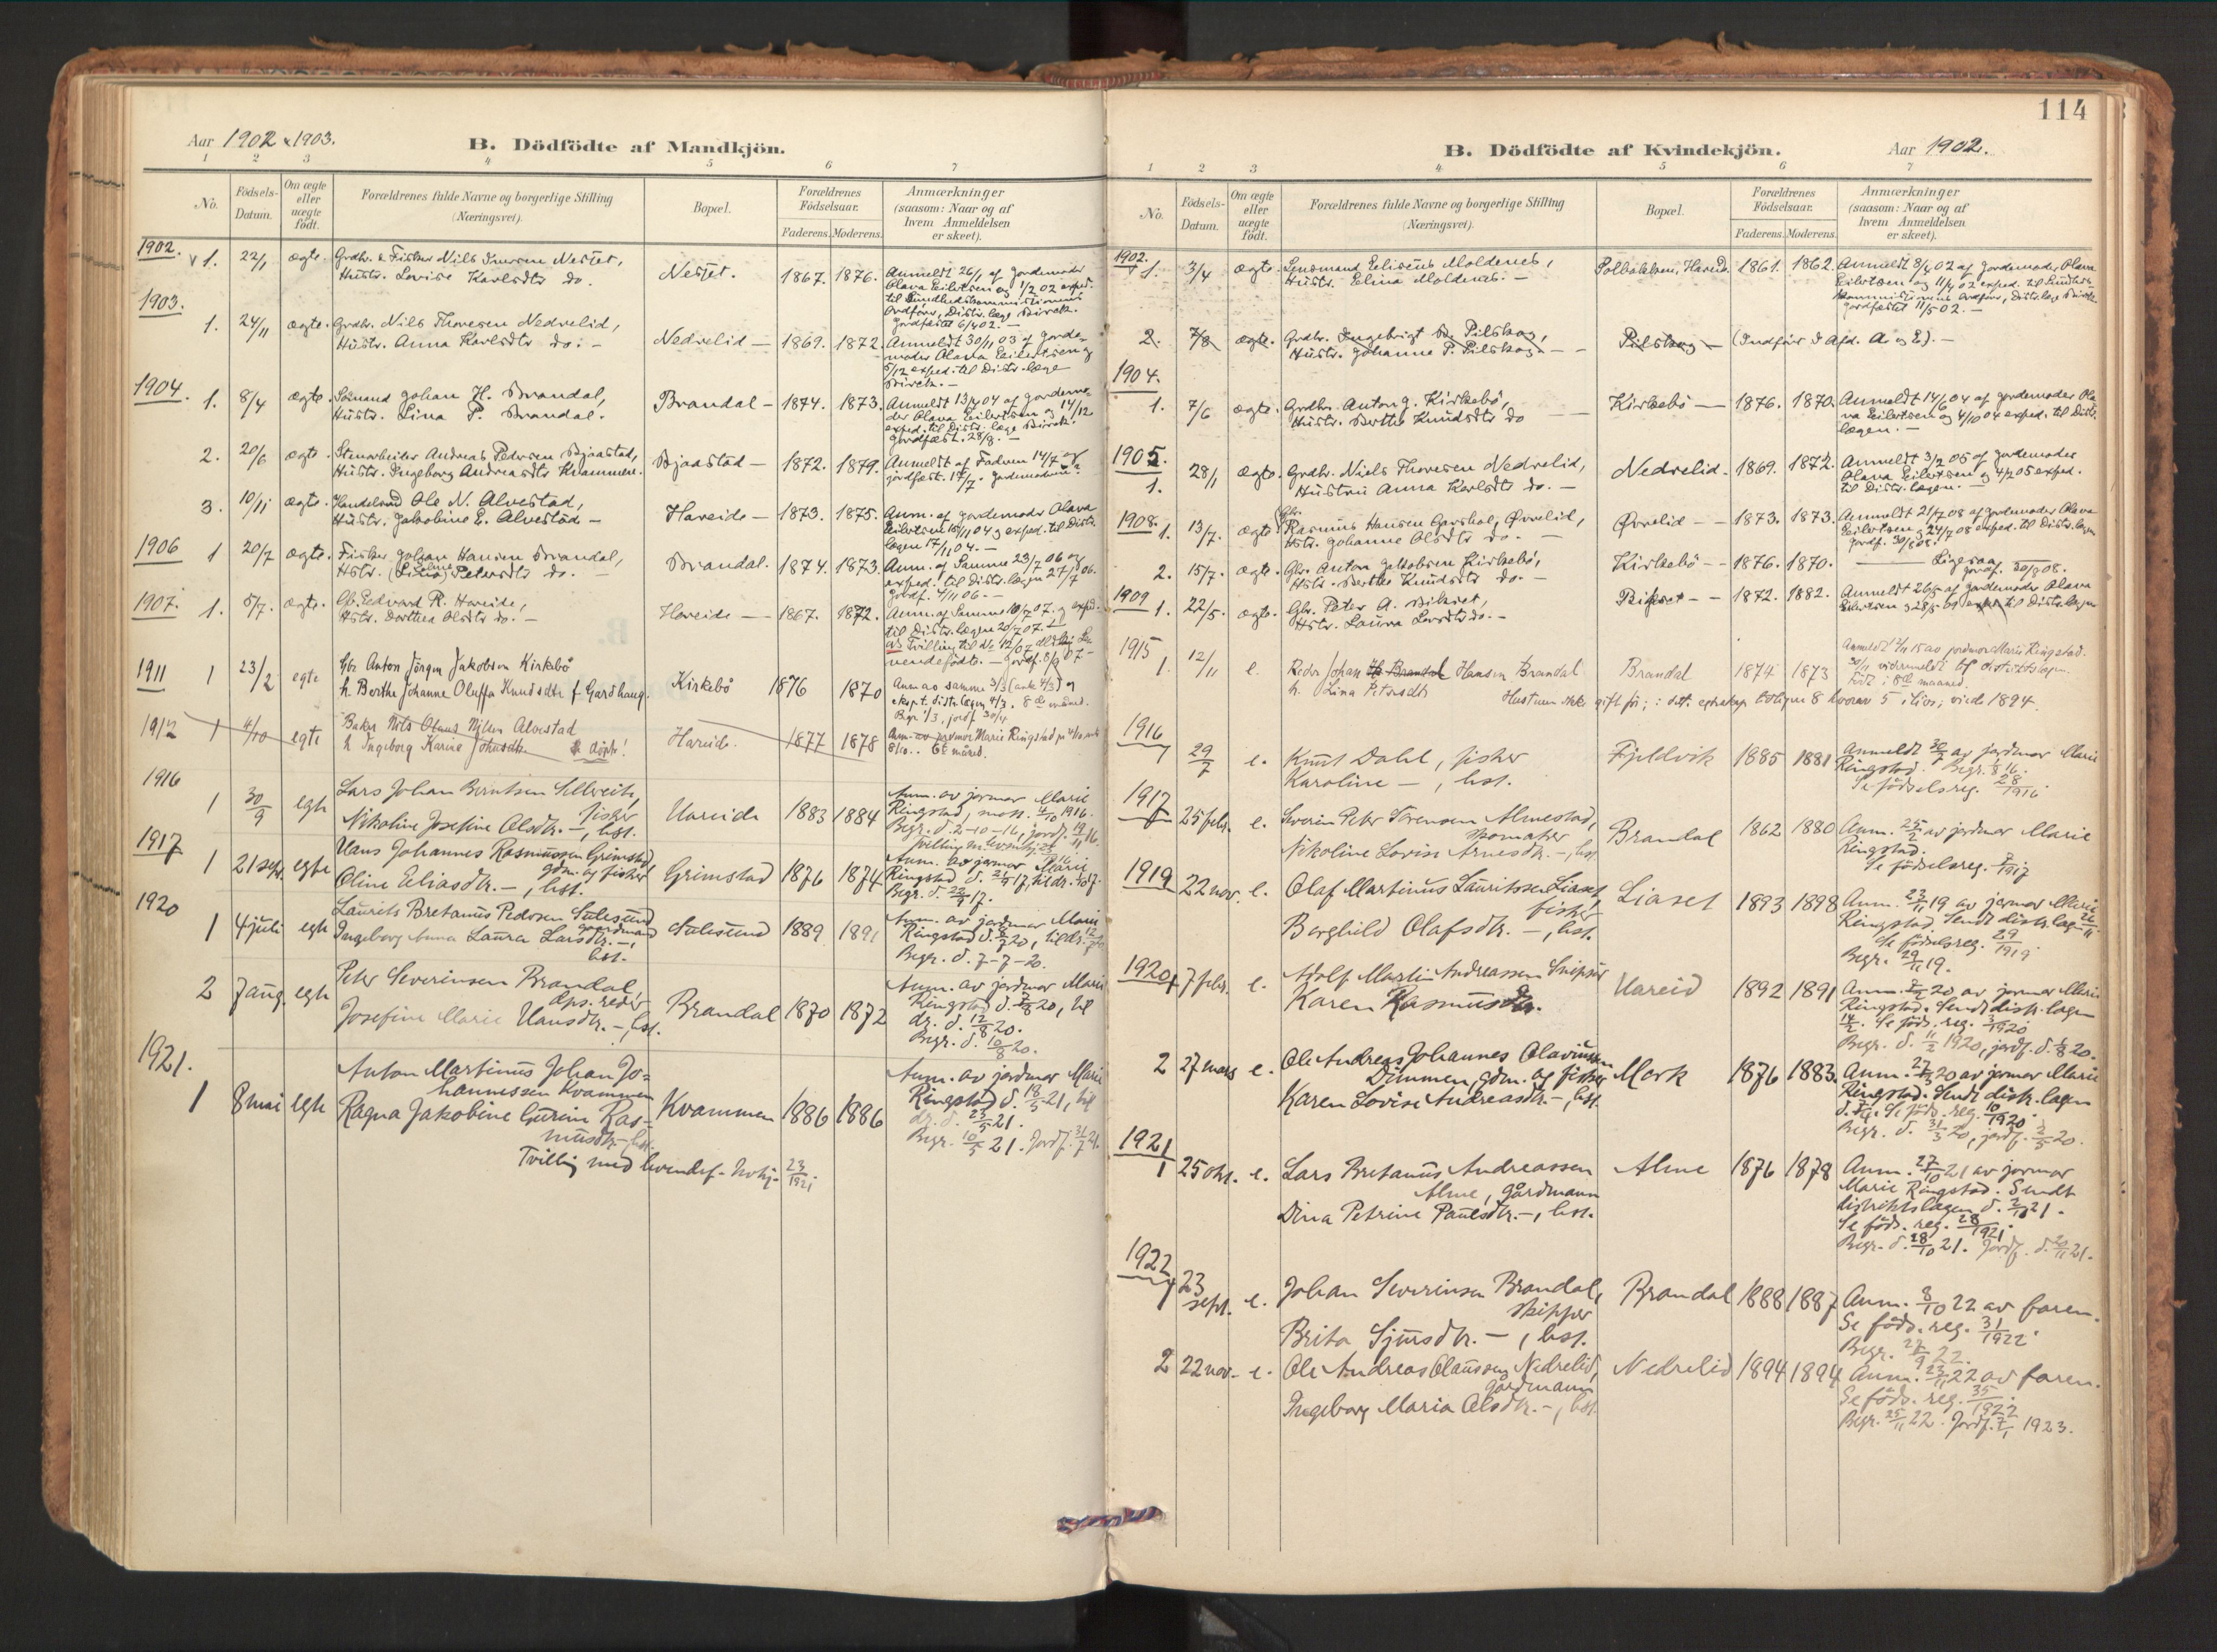 Aar 1902 & 1903.
B. Dödfödte af Mandkjön.
1 2 3 4 5 6 7
No.
Födsels-Datum.
Om ægte eller uægte födt.
Forældrenes fulde Navne og borgerlige Stilling (Næringsvei).
Bopæl.
Forældrenes Födselsaar.
Faderens. Moderens.
Anmærkninger (saasom: Naar og af hvem Anmeldelsen er skeet).
1902.
1. 22/1 ægte. Grdbr. & Fisker Niels Iversen Nesset,
Hustr. Lovise Karlsdtr do.
Nesset. 1867. 1876.
Anmeldt 26/1 af Jordemoder
Olava Eilertsen og 1/2 02 exped.
til Sundhedskommissionens
Ordfører, Distr. læge
Jordfæstet 6/4 02. —
1903.
1. 24/11 ægte. Grdbr. Nils Thoresen Nedrelid,
Hustr. Anna Karlsdtr do. —
Nedrelid — 1869. 1872.
Anmeldt 30/11 03 af Jorde-
moder Olava Eilertsen og
5/12 exped. til Distr. læge
1904.
1. 8/4 ægte. Sömand Johan H. Brandal,
Hustr. Lina P. Brandal.
Brandal — 1874. 1873.
Anmeldt 13/4 04 af Jordemo-
der Olava Eilertsen og 14/12
exped. til Distr. læge
Jordfæst. 28/8. —
2. 20/6 ægte. Stenarbeider Andreas Pedersen Bjaastad,
Hustr. Ingeborg Andreasdtr Kvammen.
Bjaastad — 1872. 1879.
Anmeldt af Faderen 14/7 og
jordfæst. 17/7.
3. 10/11 ægte. Handelsmd Ole N. Alvestad,
Hustr. Jakobine E. Alvestad —
Hareide — 1873. 1875.
Anm. af Jordemoder Olava
Eilertsen 15/11 04 og exped. til Distr.
lægen 17/11 04. —
1906
1 20/7 ægte. Fisker Johan Hansen Brandal,
Hstr. (Lina) Petersdtr do. —
Brandal. 1874. 1873.
Anm. af Samme 23/7 06 og
exped. til Distr. lægen 27/7 06.
Jordf. 4/11 06. —
1907.
1. 5/7. ægte. Gbr. Edvard R. Hareide,
Hstr. Dorthea Olsdtr do. —
Hareide — 1867. 1872.
Anm. af Samme 10/7 07. og exped.
til Distr. lægen 20/7 07.
Tvilling til No 12/07 Le-
vendefödte. — Jordf. 8/9 07 —
1911
1 23/2 egte Gbr Anton Jørgen Jakobsen Kirkebö
h. Berthe Johanne Oluffa Knudsdtr f. Garshaug.
Kirkebö 1876 1870
Anm av samme 3/3 (ank 4/3) og
eksp t. distr. lægen 4/3. 8de maned.
Begr. 1/3, jordf. 30/4
1912
1 4/10 egte Baker Nils Olaus Nilsen Alvestad
h Ingeborg Karine Johnsdtr döpt!
Hareide. 1877 1878
Anm. av jormor Marie Ringstad
8/10. 6te måned.
1916
1 30/9 egte Lars Johan Berntsen
fisker
Nikoline Josefine Olsdtr. —, hst.
Hareide 1883 1884
Anm. av jormor Marie
Ringstad, 4/10 1916.
Begr. d. 2-10-16, jordf. 19/11 16.
1917
1 21 sept. egte Hans Johannes Rasmussen Grimstad,
gdm. og fisker
Oline Eliasdtr. —, hst.
Grimstad 1876 1874
Anm. av jormor Marie
Ringstad d. 17, til dr.
Begr. d. 17.
1920
1 4 juli egte Laurits Bretanus Pedersen Sulesund
Ingeborg Anna Laura Larsdtr. —,
hst.
Sulesund 1889 1891
Anm. av jordmor Marie
Ringstad d. 20, til dr.
Begr. d. 7-7-20.
2 7 aug. egte Peter Severinsen Brandal,
dps. reder
Josefine Marie Hansdtr. —, hst.
Brandal 1870 1872
Anm. av jordmor Marie
Ringstad d. 7/8 20, til
dr. d. 12/8 20.
Begr. d. 10/8 20.
1921.
1 8 mai egte Anton Martinus Johan Jo-
hannessen Kvammen
Ragna Jakobine Gurine Ras-
musdtr —, hst.
Kvammen 1886 1886
Anm. av jordmor Marie
Ringstad d. 18/5 21, til
dr. d. 23/5 21.
Begr. 10/5 21. Jordf. 31/7 21.
Tvilling med levendef. 23/1921
114
B. Dödfödte af Kvindekjön.
Aar 1902.
1 2 3 4 5 6 7
No.
Födsels-Datum.
Om ægte eller uægte födt.
Forældrenes fulde Navne og borgerlige Stilling (Næringsvei).
Bopæl.
Forældrenes Födselsaar.
Faderens. Moderens.
Anmærkninger (saasom: Naar og af hvem Anmeldelsen er skeet).
1902.
1. 3/4 ægte. Lensmand Eliseus Moldenes,
Hustr. Elina Moldenes. —
Hareide. 1861. 1862.
Anmeldt 8/4 02 af Jordemoder Olava
Eilertsen og 11/4 02 exped. til Sundheds-
kommissionens Ordfører, Distr. læge
Jordfæstet 11/5 02. —
2. 7/8 ægte. Grdbr. Ingebrigt Pilskog,
Hustr. Johanne P. Pilskog —
Pilskog — (Indført I Afd. A. og E). —
1904.
1. 7/6 ægte. Grdbr. Anton J. Kirkebö,
Hustr. Berthe Knudsdtr do
Kirkebö — 1876. 1870.
Anmeldt 14/6 04 af Jordemoder Ola-
va Eilertsen og 4/10 04 exped. til Distr.
lægen. —
1905.
1. 28/1 ægte. Grdbr. Niels Thoresen Nedrelid,
Hustru Anna Karlsdtr do. —
Nedrelid. 1869. 1872.
Anmeldt 3/2 05 af Jordemoder
Olava Eilertsen og 4/2 05 exped.
til Distr. lægen. —
1908.
1. 13/7. ægte Gbr. Rasmus Hansen Garshol, Øvrelid,
Hstr. Johanne Olsdtr do. —
Øvrelid — 1873. 1873.
Anmeldt 21/7 08 af Jordemoder Olava
Eilertsen, og 24/7 08 exped. til Distr. lægen
Jordf. 30/8 08.
2. 15/7. ægte. Gbr. Anton Jakobsen Kirkebö,
Hstr. Berthe Knudsdtr do. —
Kirkebö — 1876. 1870.
— Ligesaa —
jordf. 30/8 08.
1909
1. 22/5. ægte. Gbr. Peter A. Bikset,
Hstr. Laura Larsdtr do. —
Bikset — 1872. 1882.
Anmeldt 26/5 af Jordemoder Olava
Eilertsen og 28/5 09 til Distr. lægen
1915
1. 12/11 e. Reder Johan Hansen Brandal
h. Lina Petersdtr
Brandal 1874 1873
Anmeldt 15 av jordmor Marie Ringstad.
30/11 videremeldt til distriktslægen.
Født i 8de maaned.
Hustruen ikke gift før; i dette egteskap tidligere 8 hvorav 5 i live; viede 1894.
1916
1 29/7 e. Knut Dahl, fisker
Karoline —, hst.
Fjeldvik 1885 1881
Anmeldt 30/7 av jordmor Marie
Ringstad. Begr. 1/8 16.
Se fødselsreg. 28/1916.
1917
1 25 febr. e. Severin Peter Sørensen Almestad,
skomaker
Nikoline Lovise Arnesdtr. —, hst.
Brandal 1862 1880
Anm. 25/2 av jordmor Marie
Ringstad.
Se fødselsreg. 7/1917
1919
1 22 nov. e. Olaf Martinus Lauritssen Liaset,
fisker
Borghild Olafsdtr. —, hst.
Liaset 1893 1898
Anm. 23/11 19 av jormor Marie
Ringstad. Sendt distr. lægen
Se fødselsreg. 29/1919.
Begr. 29/11 19.
1920
1 7 febr. e. Adolf Martin Andreassen Snipsør
Karen Rasmusdtr.
Hareid 1892 1891
Anm. 20 av jormor Marie
Ringstad. Sendt distr. lægen
14/2. Se føds. reg. 3/1920
Begr. d. 11/2 1920, jordf. d. 20.
2 27 mars e. Ole Andreas Johannes Olavsen
Dimmen, gdm. og fisker
Karen Lovise Andreasdtr. —, hst.
Mork 1876 1883.
Anm. 27/3 20 av jormor Marie
Ringstad. Sendt distr. lægen
Se føds. reg. 10/1920.
Begr. d. 31/3 20, jordf. 2/5 20.
1921
1 25 okt. e. Lars Bretanus Andreassen
Alme, gårdmann
Dina Petrine Paulsdtr. —, hst.
Alme 1876 1878
Anm. 27/10 21 av jormor
Marie Ringstad. Sendt
distriktslægen d. 21.
Se føds. reg. 28/1921.
Begr. d. 28/10 21. Jordf. d. 20/11 21.
1922
1 23 sept. e. Johan Severinsen Brandal,
skipper
Brita Sjursdtr. —, hst.
Brandal 1888 1887
Anm. 8/10 22 av faren.
Se føds. reg. 31/1922.
Begr. 9 22.
2 22 nov. e. Ole Andreas Olaussen Nedrelid,
gårdmann
Ingeborg Maria Olsdtr. —, hst.
Nedrelid 1894 1894
Anm. 23/11 22 av faren.
Se føds. reg. 35/1922
Begr. 25/11 22. Jordf. 7/1 1923.